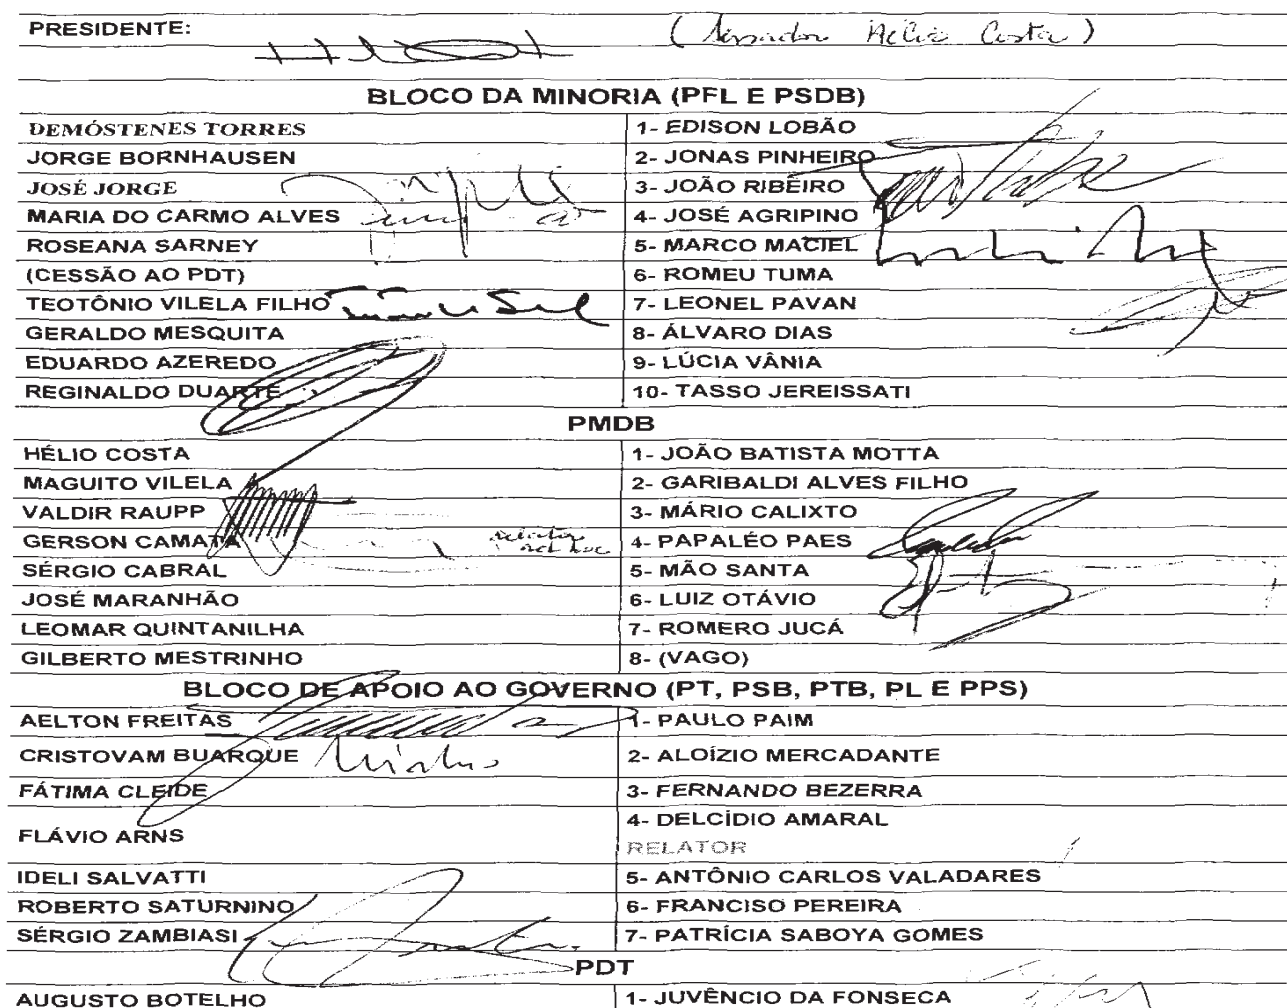 PRESIDENTE: (Senador Hélio Costa)
BLOCO DA MINORIA (PFL E PSDB)
DEMÓSTENES TORRES 1- EDISON LOBÃO
JORGE BORNHAUSEN 2- JONAS PINHEIRO
JOSÉ JORGE 3- JOÃO RIBEIRO
MARIA DO CARMO ALVES 4- JOSÉ AGRIPINO
ROSEANA SARNEY 5- MARCO MACIEL
(CESSÃO AO PDT) 6- ROMEU TUMA
TEOTÔNIO VILELA FILHO 7- LEONEL PAVAN
GERALDO MESQUITA 8- ÁLVARO DIAS
EDUARDO AZEREDO 9- LÚCIA VÂNIA
REGINALDO DUARTE 10- TASSO JEREISSATI
PMDB
HÉLIO COSTA 1- JOÃO BATISTA MOTTA
MAGUITO VILELA 2- GARIBALDI ALVES FILHO
VALDIR RAUPP 3- MÁRIO CALIXTO
GERSON CAMATA relator ad hoc 4- PAPALÉO PAES
SÉRGIO CABRAL 5- MÃO SANTA
JOSÉ MARANHÃO 6- LUIZ OTÁVIO
LEOMAR QUINTANILHA 7- ROMERO JUCÁ
GILBERTO MESTRINHO 8- (VAGO)
BLOCO DE APOIO AO GOVERNO (PT, PSB, PTB, PL E PPS)
AELTON FREITAS 1- PAULO PAIM
CRISTOVAM BUARQUE 2- ALOÍZIO MERCADANTE
FÁTIMA CLEIDE 3- FERNANDO BEZERRA
FLÁVIO ARNS 4- DELCÍDIO AMARAL
RELATOR
IDELI SALVATTI 5- ANTÔNIO CARLOS VALADARES
ROBERTO SATURNINO 6- FRANCISO PEREIRA
SÉRGIO ZAMBIASI 7- PATRÍCIA SABOYA GOMES
PDT
AUGUSTO BOTELHO 1- JUVÊNCIO DA FONSECA